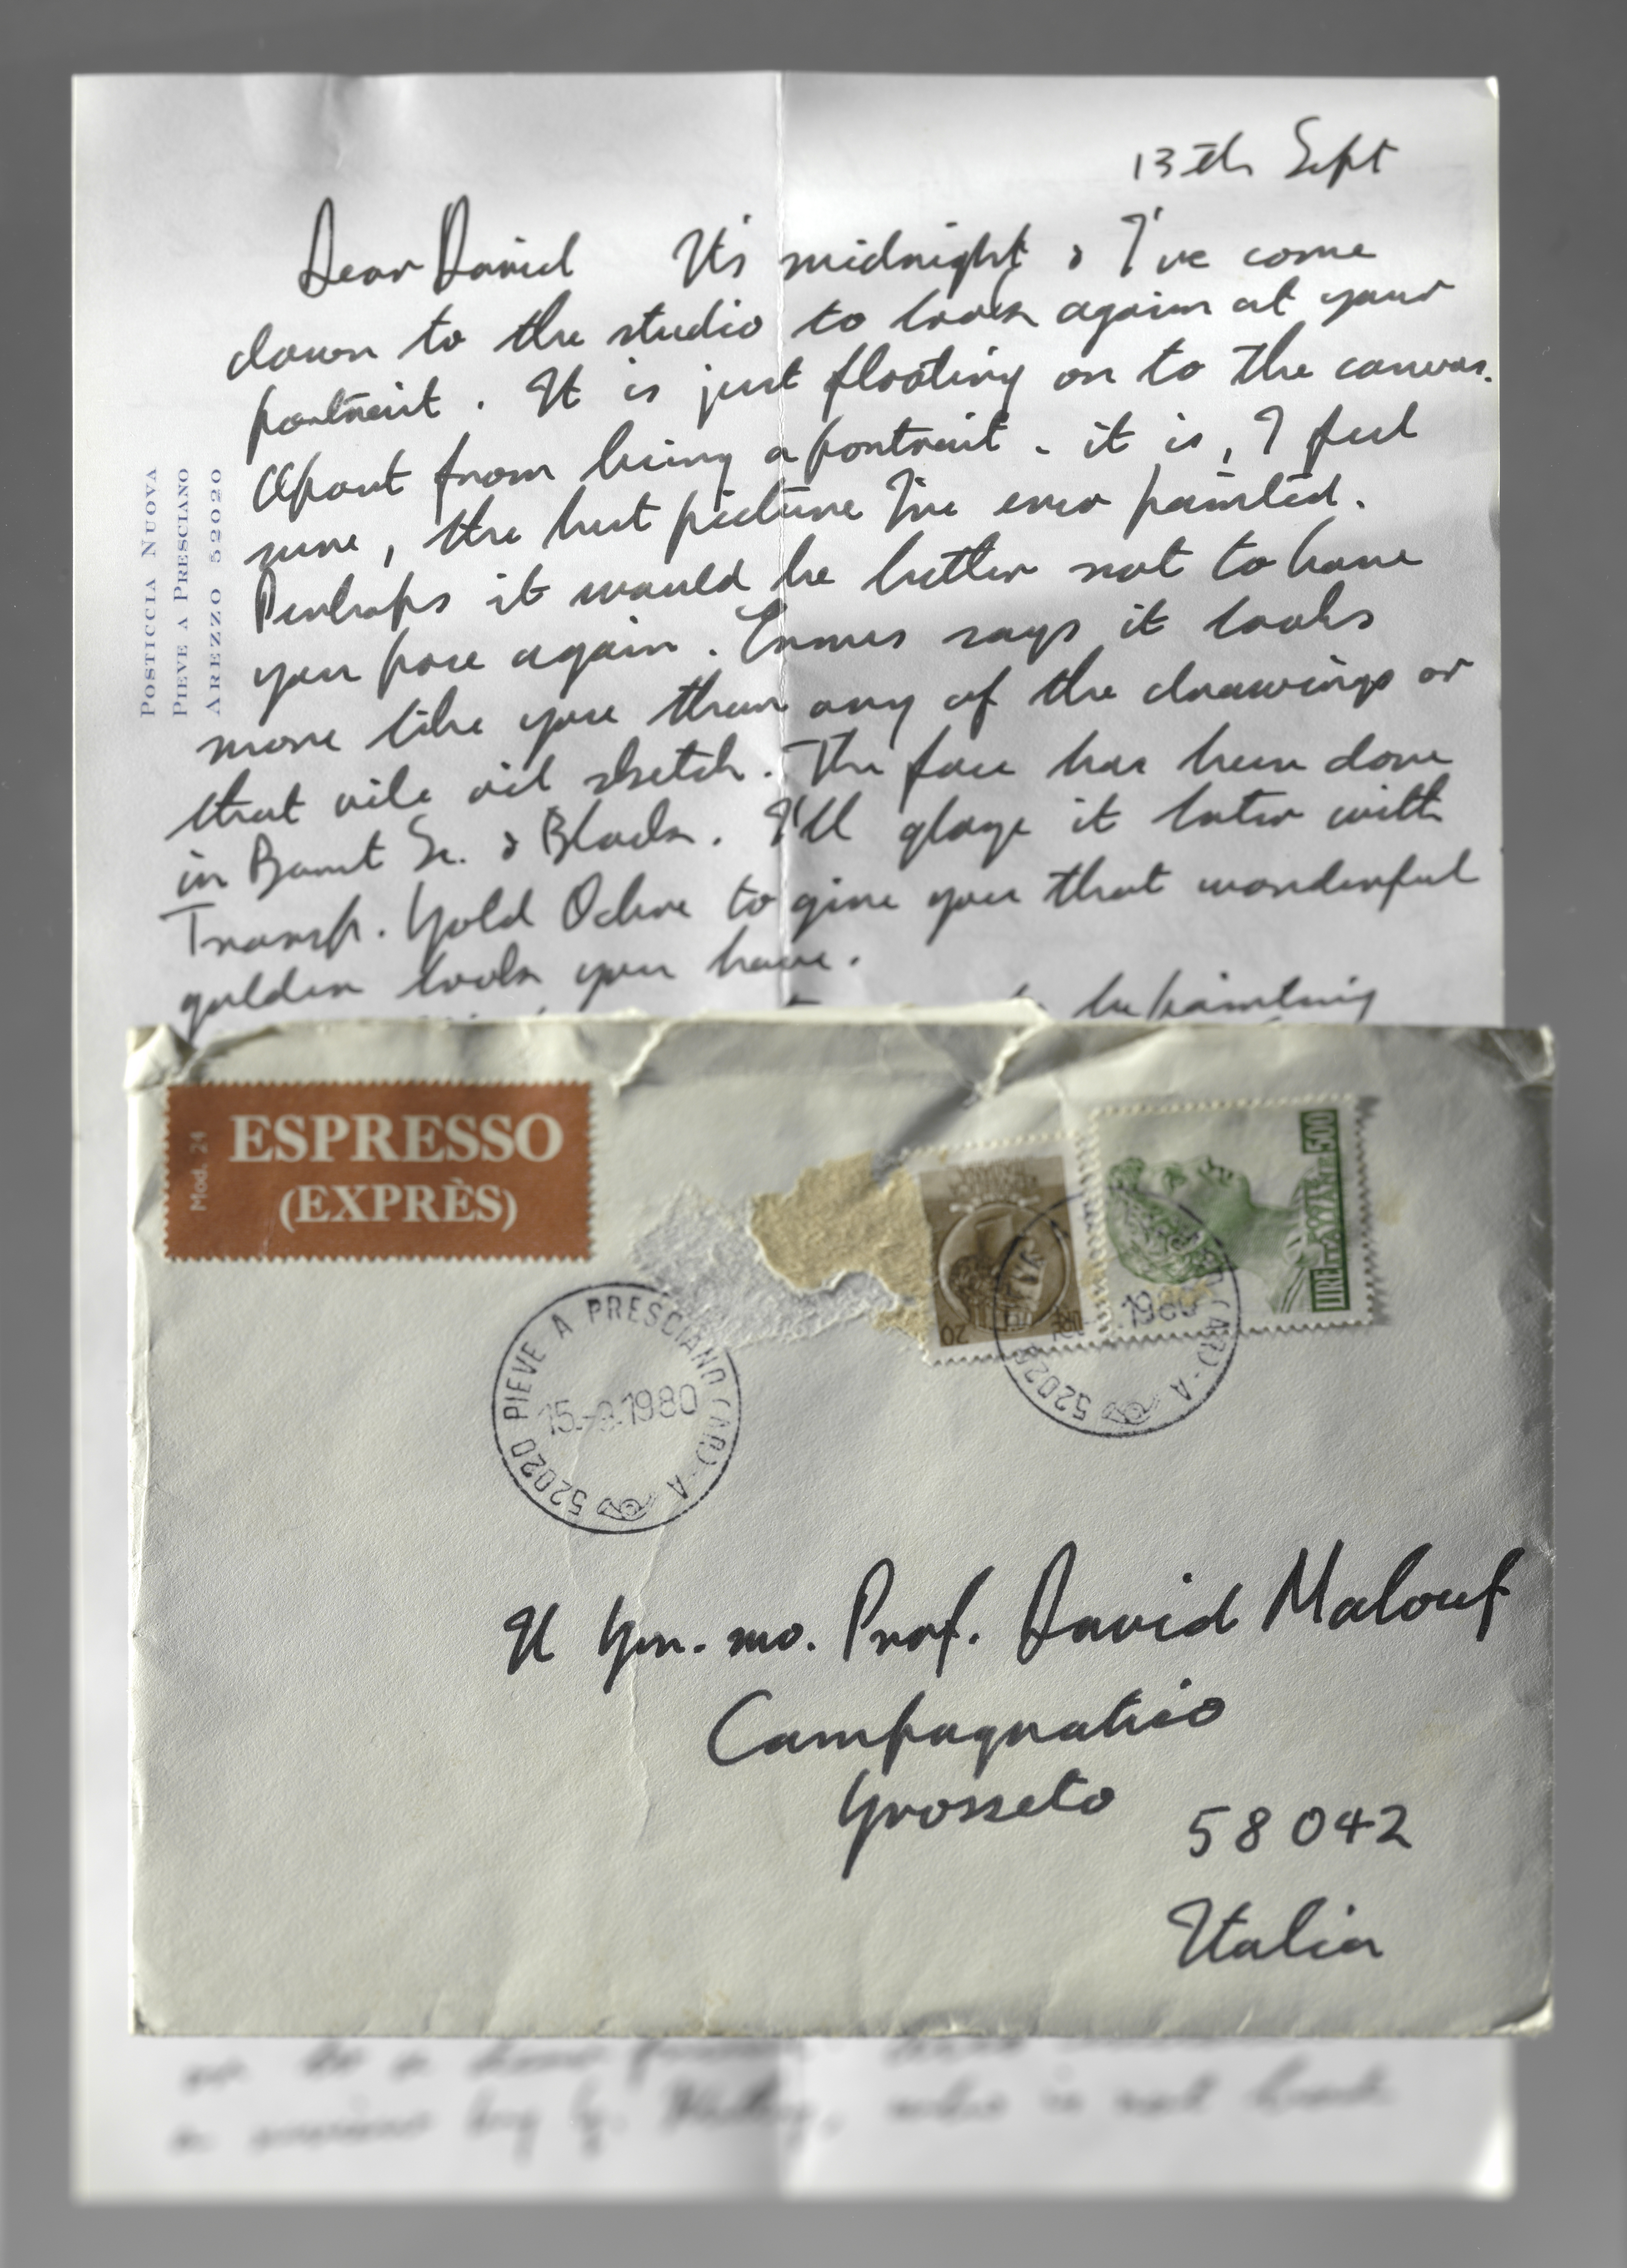 13th Sept
Dear David It's midnight & I've come
down to the studio to look again at your
portrait. It is just floating on to the canvas.
Apart from being a portrait - it is, I feel
sure, the best picture I've ever painted.
Perhaps it would be better not to have
you pose again. Ermes says it looks
more like you than any of the drawings or
that vile oil sketch. The face has been done
in Burnt Si. & Black. I'll glaze it later with
Transp. Gold Ochre to give you that wonderful
golden look you have.
be painting
POSTICCIA NUOVA
PIEVE A PRESCIANO
AREZZO 52020
Mod. 24
ESPRESSO
(EXPRÈS)
20
LIRE ITALIANE 500
52020 PIEVE A PRESCIANO (AR) - A
15.-9.1980
52020 (AR) - A
1980
Il Gen.mo. Prof. David Malouf
Campagnatico
Grosseto
58042
Italia